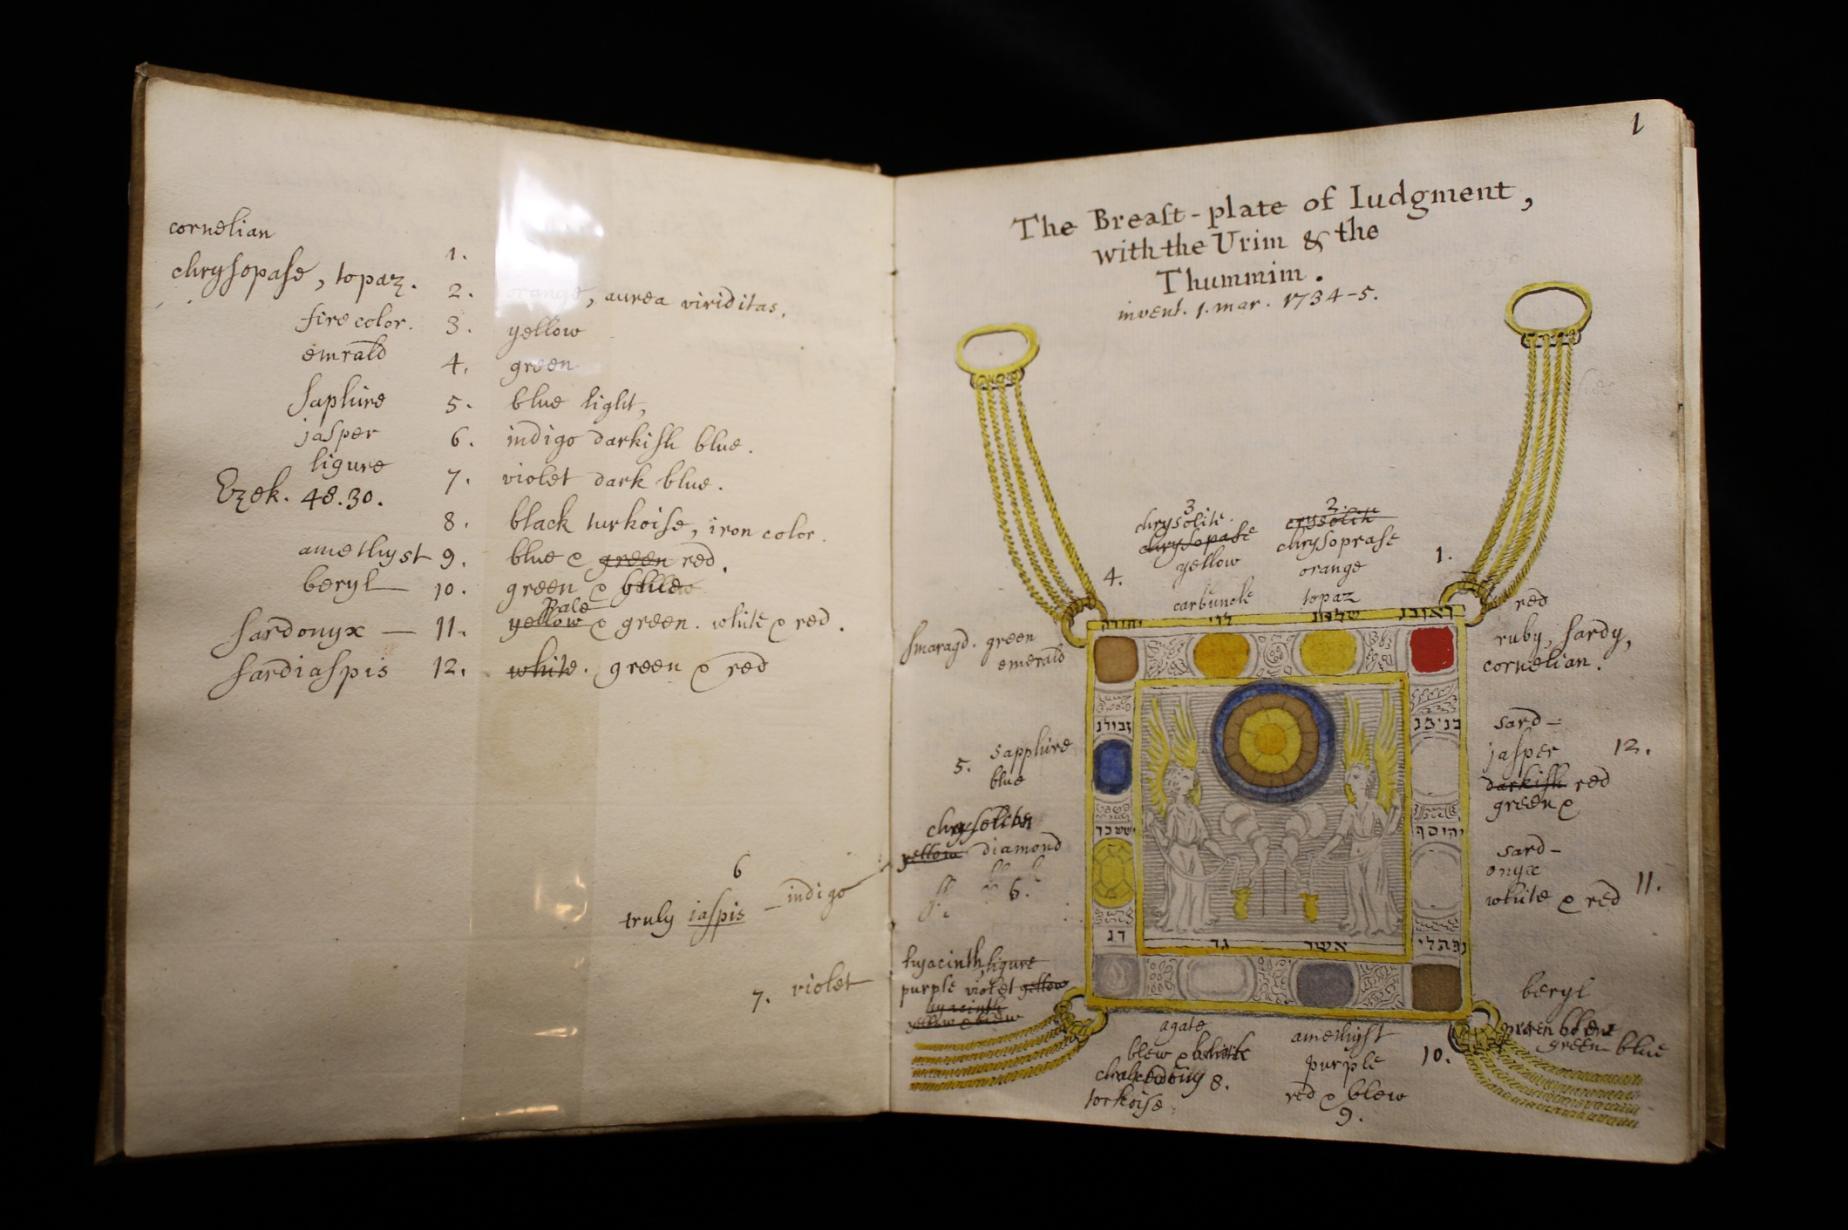 cornelian 1.
chrysopase, topaz. 2. orange, aurea viriditas.
fire color. 3. yellow
emrald 4. green
saphire 5. blue light,
jasper 6. indigo darkish blue.
ligure 7. violet dark blue.
Ezek. 48.30.
8. black turkoise, iron color.
amethyst 9. blue & green red.
beryl 10. green & blue
pale
sardonyx — 11. yellow & green. white & red.
sardiaspis 12. white. green & red
6
truly iaspis — indigo
7. violet
1
The Breast-plate of Iudgment,
with the Urim & the
Thummim.
invent. 1. mar. 1734-5.
3
chrysolite.
chrysopase
yellow
carbuncle
2.
crysolit
chrysoprase
orange
topaz
1.
red
ruby, sardy,
cornelian.
4.
smaragd. green
emerald
יהודה לוי שמעון ראובן
זבולן
בנימן
5. sapphire
blue
sard-
jasper 12.
darkish red
green &
יששכר
יהוסף
chrysolite
yellow diamond
6.
sard-
onyx 11.
white & red
דן
גד אשר
נפתלי
hyacinth, ligure
purple violet yellow
hyacinth
agate
blew & black
chalcedony 8.
torkoise
amethyst
purple
red & blew
9.
10.
beryl
green blew
green blue